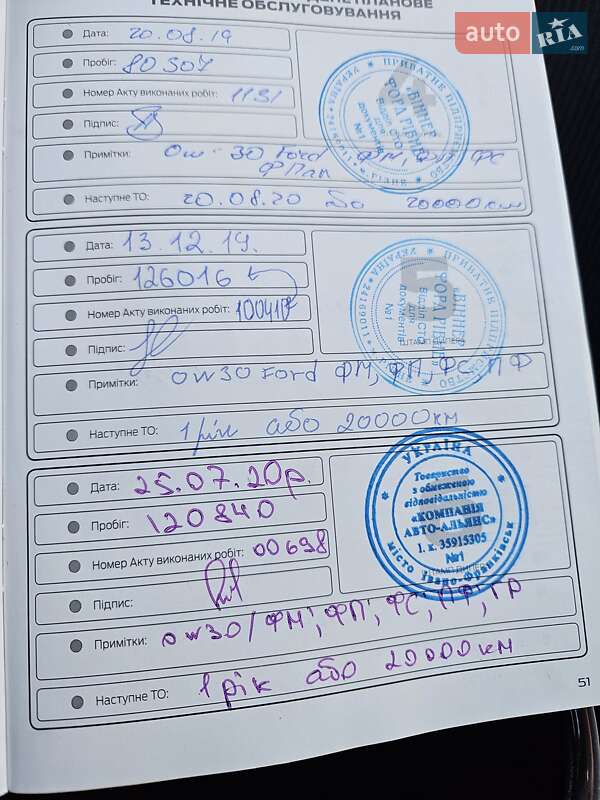 ПЛАНОВЕ
ТЕХНІЧНЕ ОБСЛУГОВУВАННЯ
auto RIA.com
Дата: 20.08.19
Пробіг: 80304
Номер Акту виконаних робіт: 1131
Підпис:
Примітки: Ow-30 Ford ФМ, ФП, ФС
ФПал
Наступне ТО: 20.08.20 або 20000км
ПРИВАТНЕ ПІДПРИЄМСТВО
УКРАЇНА
«ВІННЕР
ФОРД РІВНЕ»
Відділ СТО
Для
документів
№1
4
Дата: 13.12.19.
Пробіг: 126016
Номер Акту виконаних робіт: 100417
Підпис:
Примітки: OW30 Ford ФМ, ФП, ФС, ПФ
Наступне ТО: 1 рік або 20000км
ПРИВАТНЕ ПІДПРИЄМСТВО
УКРАЇНА
«ВІННЕР
ФОРД РІВНЕ»
Відділ СТО
Для
документів
№1
5
ШТАМП ДИЛЕРА
Дата: 25.07.20р.
Пробіг: 120840
Номер Акту виконаних робіт: 00698
Підпис:
Примітки: ow30/ФМ, ФП, ФС, ПФ, ГР
Наступне ТО: 1 рік або 20000 км
УКРАЇНА
Товариство
з обмеженою
відповідальністю
«КОМПАНІЯ
АВТО-АЛЬЯНС»
і. к. 35915305
№1
місто Івано-Франківськ
51